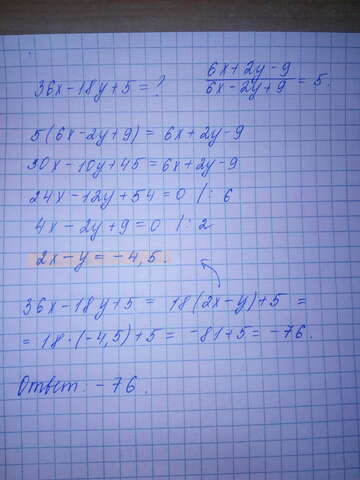 36x - 18y + 5 = ? (6x + 2y - 9)/(6x - 2y + 9) = 5
5(6x - 2y + 9) = 6x + 2y - 9
30x - 10y + 45 = 6x + 2y - 9
24x - 12y + 54 = 0 | : 6
4x - 2y + 9 = 0 | : 2
2x - y = -4,5.
36x - 18y + 5 = 18(2x - y) + 5 =
= 18 · (-4,5) + 5 = -81 + 5 = -76.
Ответ -76.